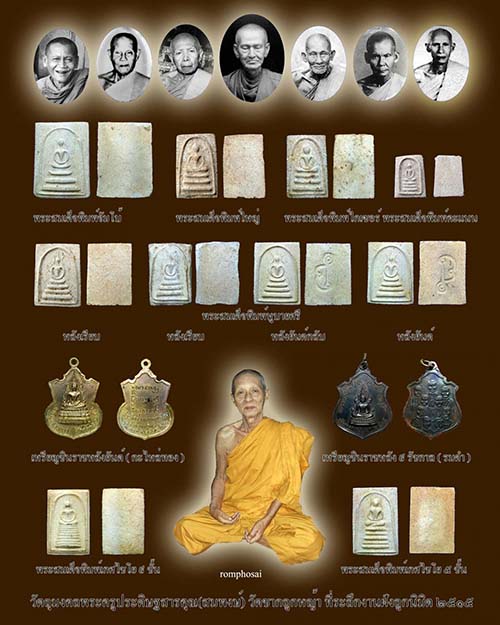 พระสมเด็จพิมพ์จัมโบ้
พระสมเด็จพิมพ์ใหญ่
พระสมเด็จพิมพ์ไกเซอร์
พระสมเด็จพิมพ์คะแนน
พระสมเด็จพิมพ์ชูบายศรี
หลังเรียบ
หลังเรียบ
หลังยันต์กลับ
หลังยันต์
เหรียญชินราชหลังยันต์ ( กะไหล่ทอง )
เหรียญชินราชหลัง ๙ รัชกาล ( รมดำ )
พระสมเด็จพิมพ์เกศไชโย ๙ ชั้น
พระสมเด็จพิมพ์เกศไชโย ๕ ชั้น
romphosai
วัตถุมงคลพระครูประดิษฐสารคุณ(สมพงษ์) วัดซากลูกหญ้า ที่ระลึกงานฝังลูกนิมิต ๒๕๑๕